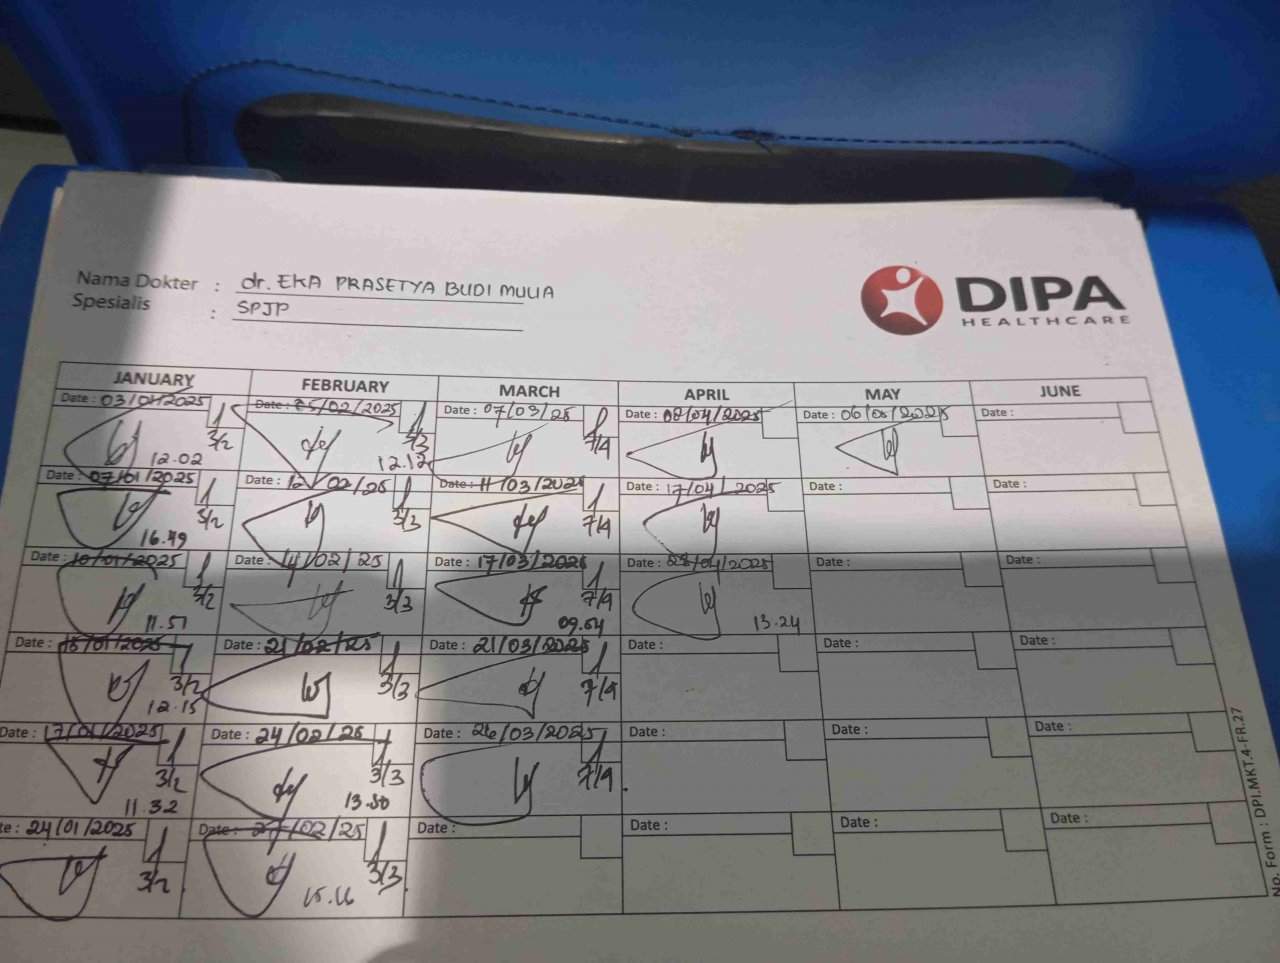 Nama Dokter : dr. EKA PRASETYA BUDI MULIA
Spesialis : SPJP
DIPA
HEALTHCARE
JANUARY FEBRUARY MARCH APRIL MAY JUNE
Date : 03/01/2025 Date : 05/02/2025 Date : 07/03/25 Date : 08/04/2025 Date : 06/05/2025 Date :
3/2 3/3 7/4
12.02 12.12
Date : 07/01/2025 Date : 12/02/25 Date : 11/03/2025 Date : 17/04/2025 Date : Date :
3/2 3/3 7/4
16.49
Date : 10/01/2025 Date : 14/02/25 Date : 17/03/2025 Date : /04/2025 Date : Date :
3/2 3/3 7/4
11.51 09.54 13.24
Date : 15/01/2025 Date : 21/02/25 Date : 21/03/2025 Date : Date : Date :
3/2 3/3 7/4
12.15
Date : 17/01/2025 Date : 24/02/25 Date : 26/03/2025 Date : Date : Date :
3/2 3/3 7/4
11.32 13.50
te : 24/01/2025 Date : 27/02/25 Date : Date : Date : Date :
3/2 3/3
15.16
No. Form : DPI.MKT.4-FR.27